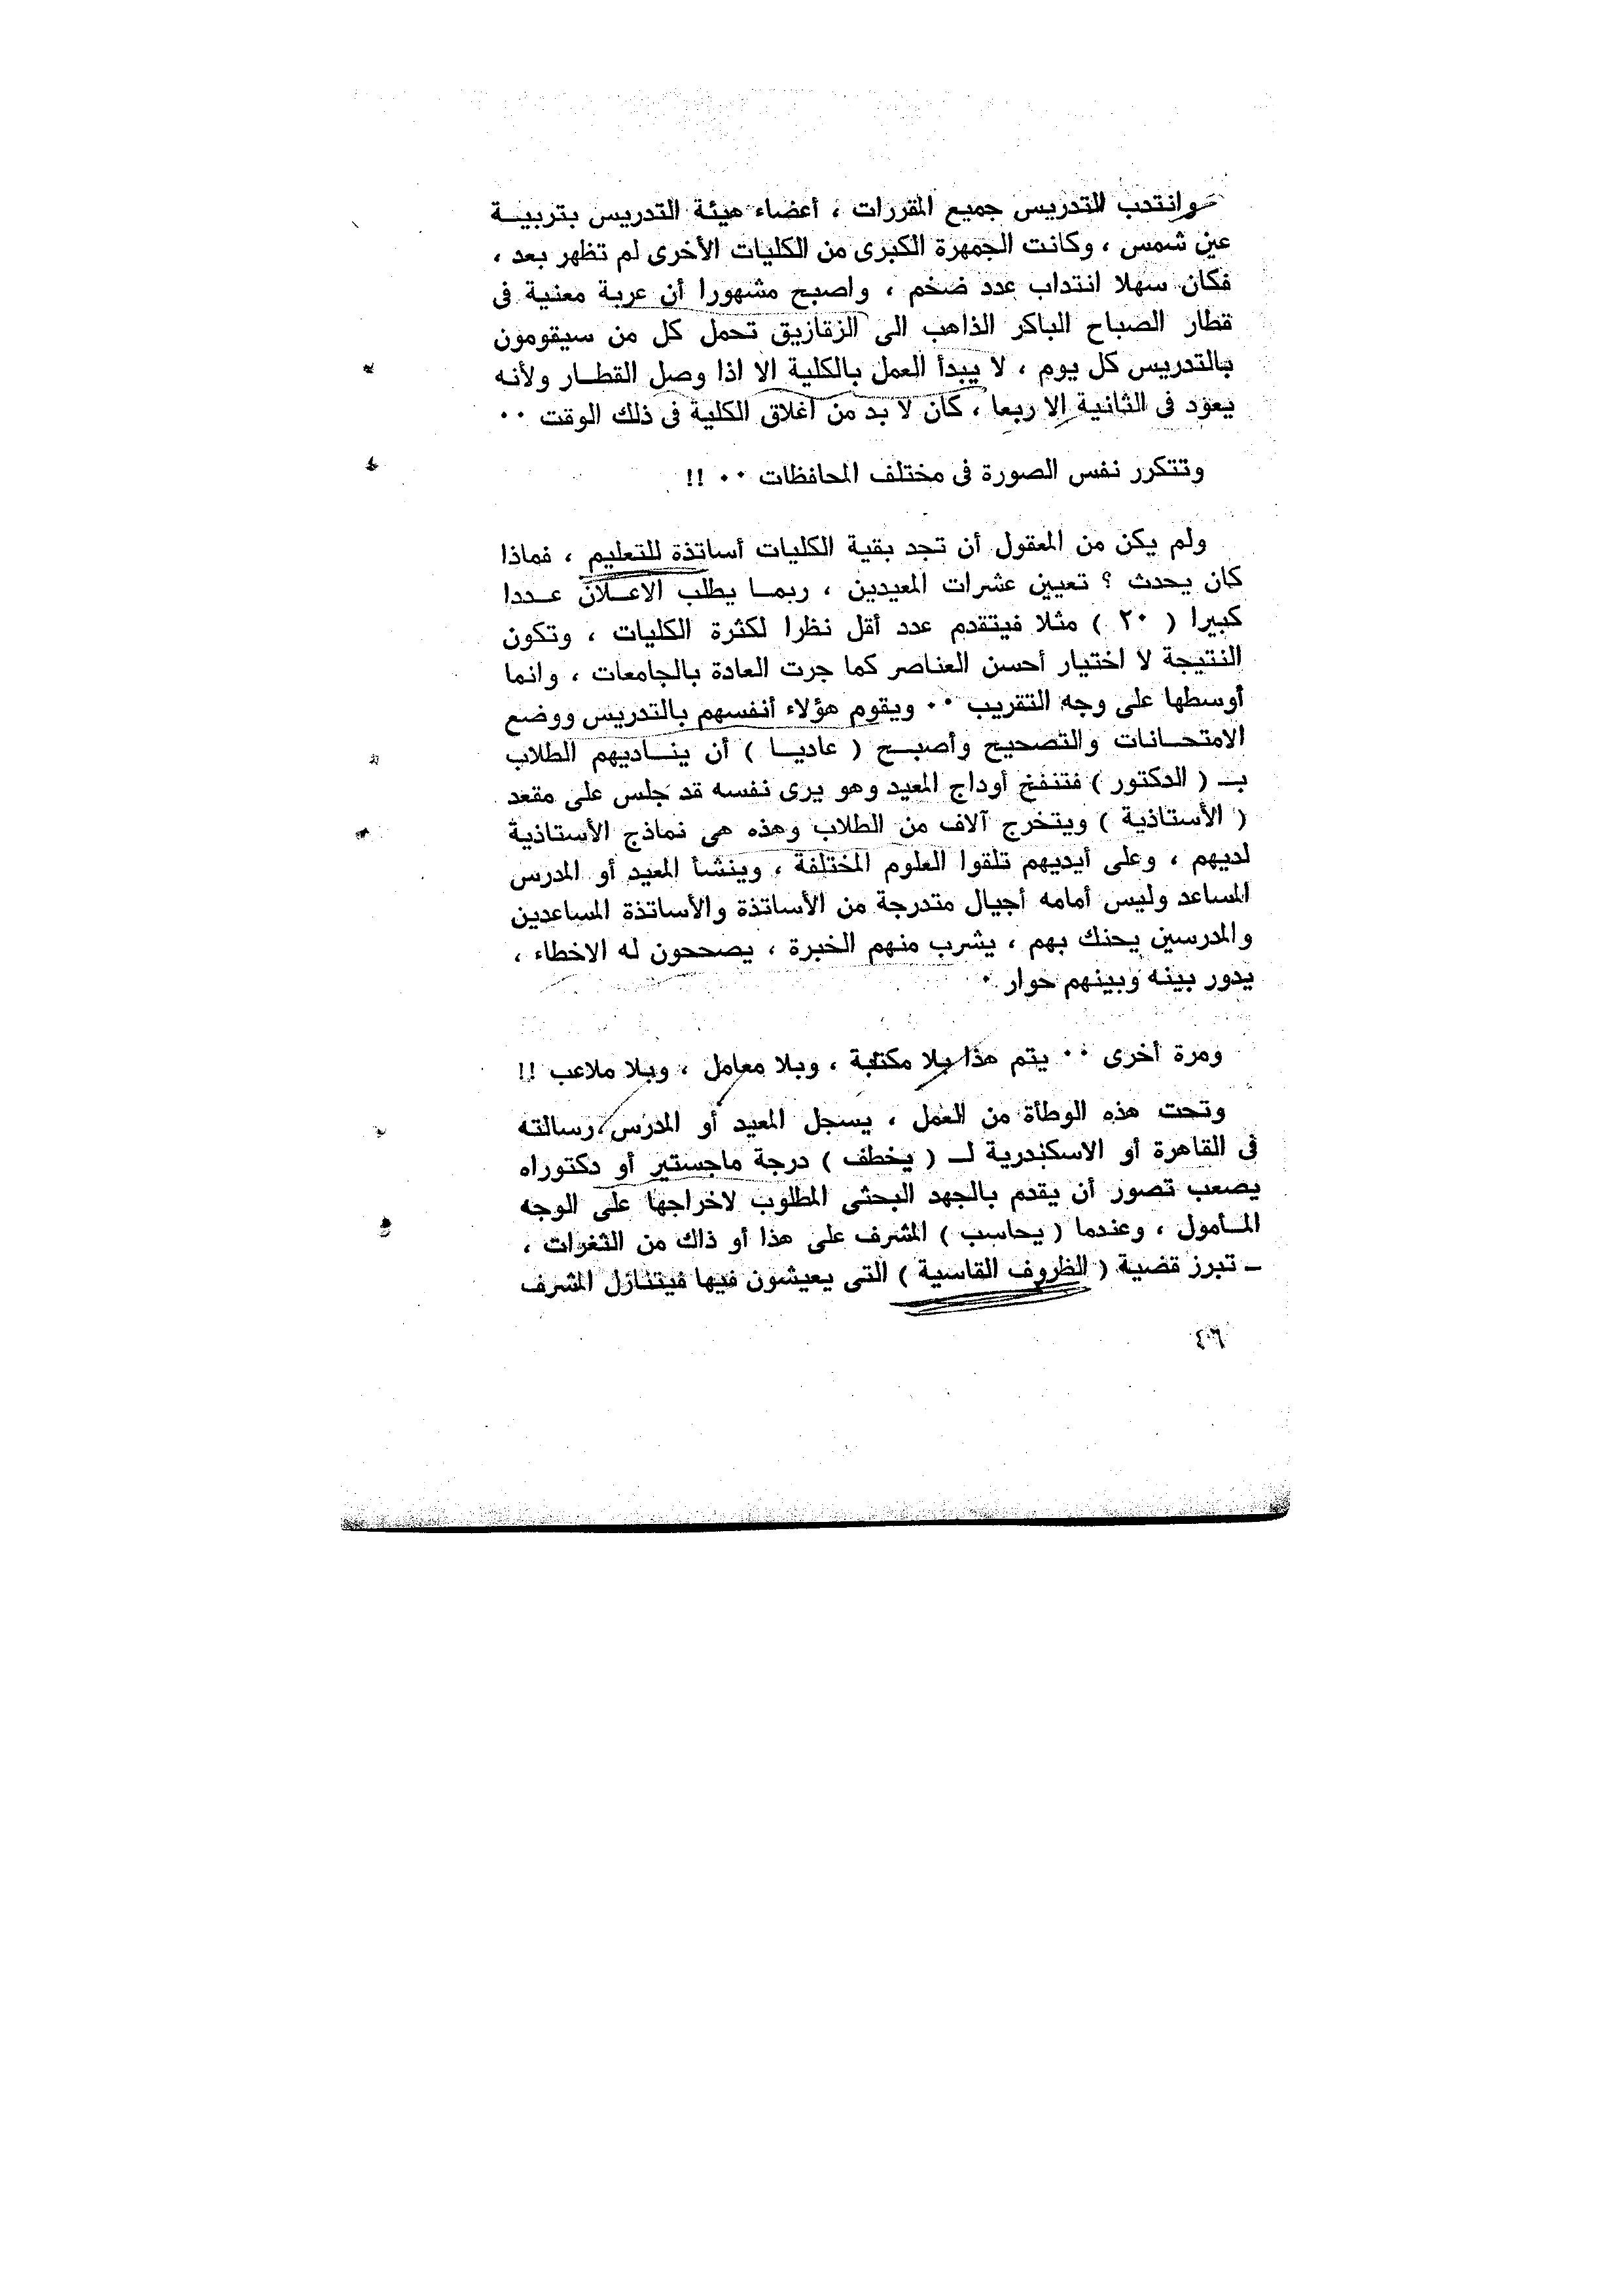 وانتدب للتدريس جميع المقررات ، أعضاء هيئة التدريس بتربيــة
عين شمس ، وكانت الجمهرة الكبرى من الكليات الأخرى لم تظهر بعد ،
فكان سهلا انتداب عدد ضخم ، واصبح مشهورا أن عربة معنية فى
قطار الصباح الباكر الذاهب الى الزقازيق تحمل كل من سيقومون
بالتدريس كل يوم ، لا يبدأ العمل بالكلية الا اذا وصل القطــار ولأنه
يعود فى الثانية إلا ربعا ، كان لا بد من اغلاق الكلية فى ذلك الوقت ٠٠
وتتكرر نفس الصورة فى مختلف المحافظات ٠٠ !!
ولم يكن من المعقول أن تجد بقية الكليات أساتذة للتعليم ، فماذا
كان يحدث ؟ تعيين عشرات المعيدين ، ربمــا يطلب الاعــلان عــددا
كبيرا ( ٢٠ ) مثلا فيتقدم عدد أقل نظرا لكثرة الكليات ، وتكون
النتيجة لا اختيار أحسن العناصر كما جرت العادة بالجامعات ، وانما
أوسطها على وجه التقريب ٠٠ ويقوم هؤلاء أنفسهم بالتدريس ووضع
الامتحــانات والتصحيح وأصبــح ( عاديــا ) أن ينــاديهم الطلاب
بـ ( الدكتور ) فتنفخ أوداج المعيد وهو يرى نفسه قد جلس على مقعد
( الأستاذية ) ويتخرج آلاف من الطلاب وهذه هى نماذج الأستاذية
لديهم ، وعلى أيديهم تلقوا العلوم المختلفة ، وينشأ المعيد أو المدرس
المساعد وليس أمامه أجيال متدرجة من الأساتذة والأساتذة المساعدين
والمدرسين يحنك بهم ، يشرب منهم الخبرة ، يصححون له الاخطاء ،
يدور بينه وبينهم حوار ٠
ومرة أخرى ٠٠ يتم هذا بلا مكتبة ، وبلا معامل ، وبلا ملاعب !!
وتحت هذه الوطأة من العمل ، يسجل المعيد أو المدرس ، رسالته
فى القاهرة أو الاسكندرية لــ ( يخطف ) درجة ماجستير أو دكتوراه
يصعب تصور أن يقدم بالجهد البحثى المطلوب لاخراجها على الوجه
المــأمول ، وعندما ( يحاسب ) المشرف على هذا أو ذاك من الثغرات ،
ــ تبرز قضية ( الظروف القاسية ) التى يعيشون فيها فيتنازل المشرف
٤٦